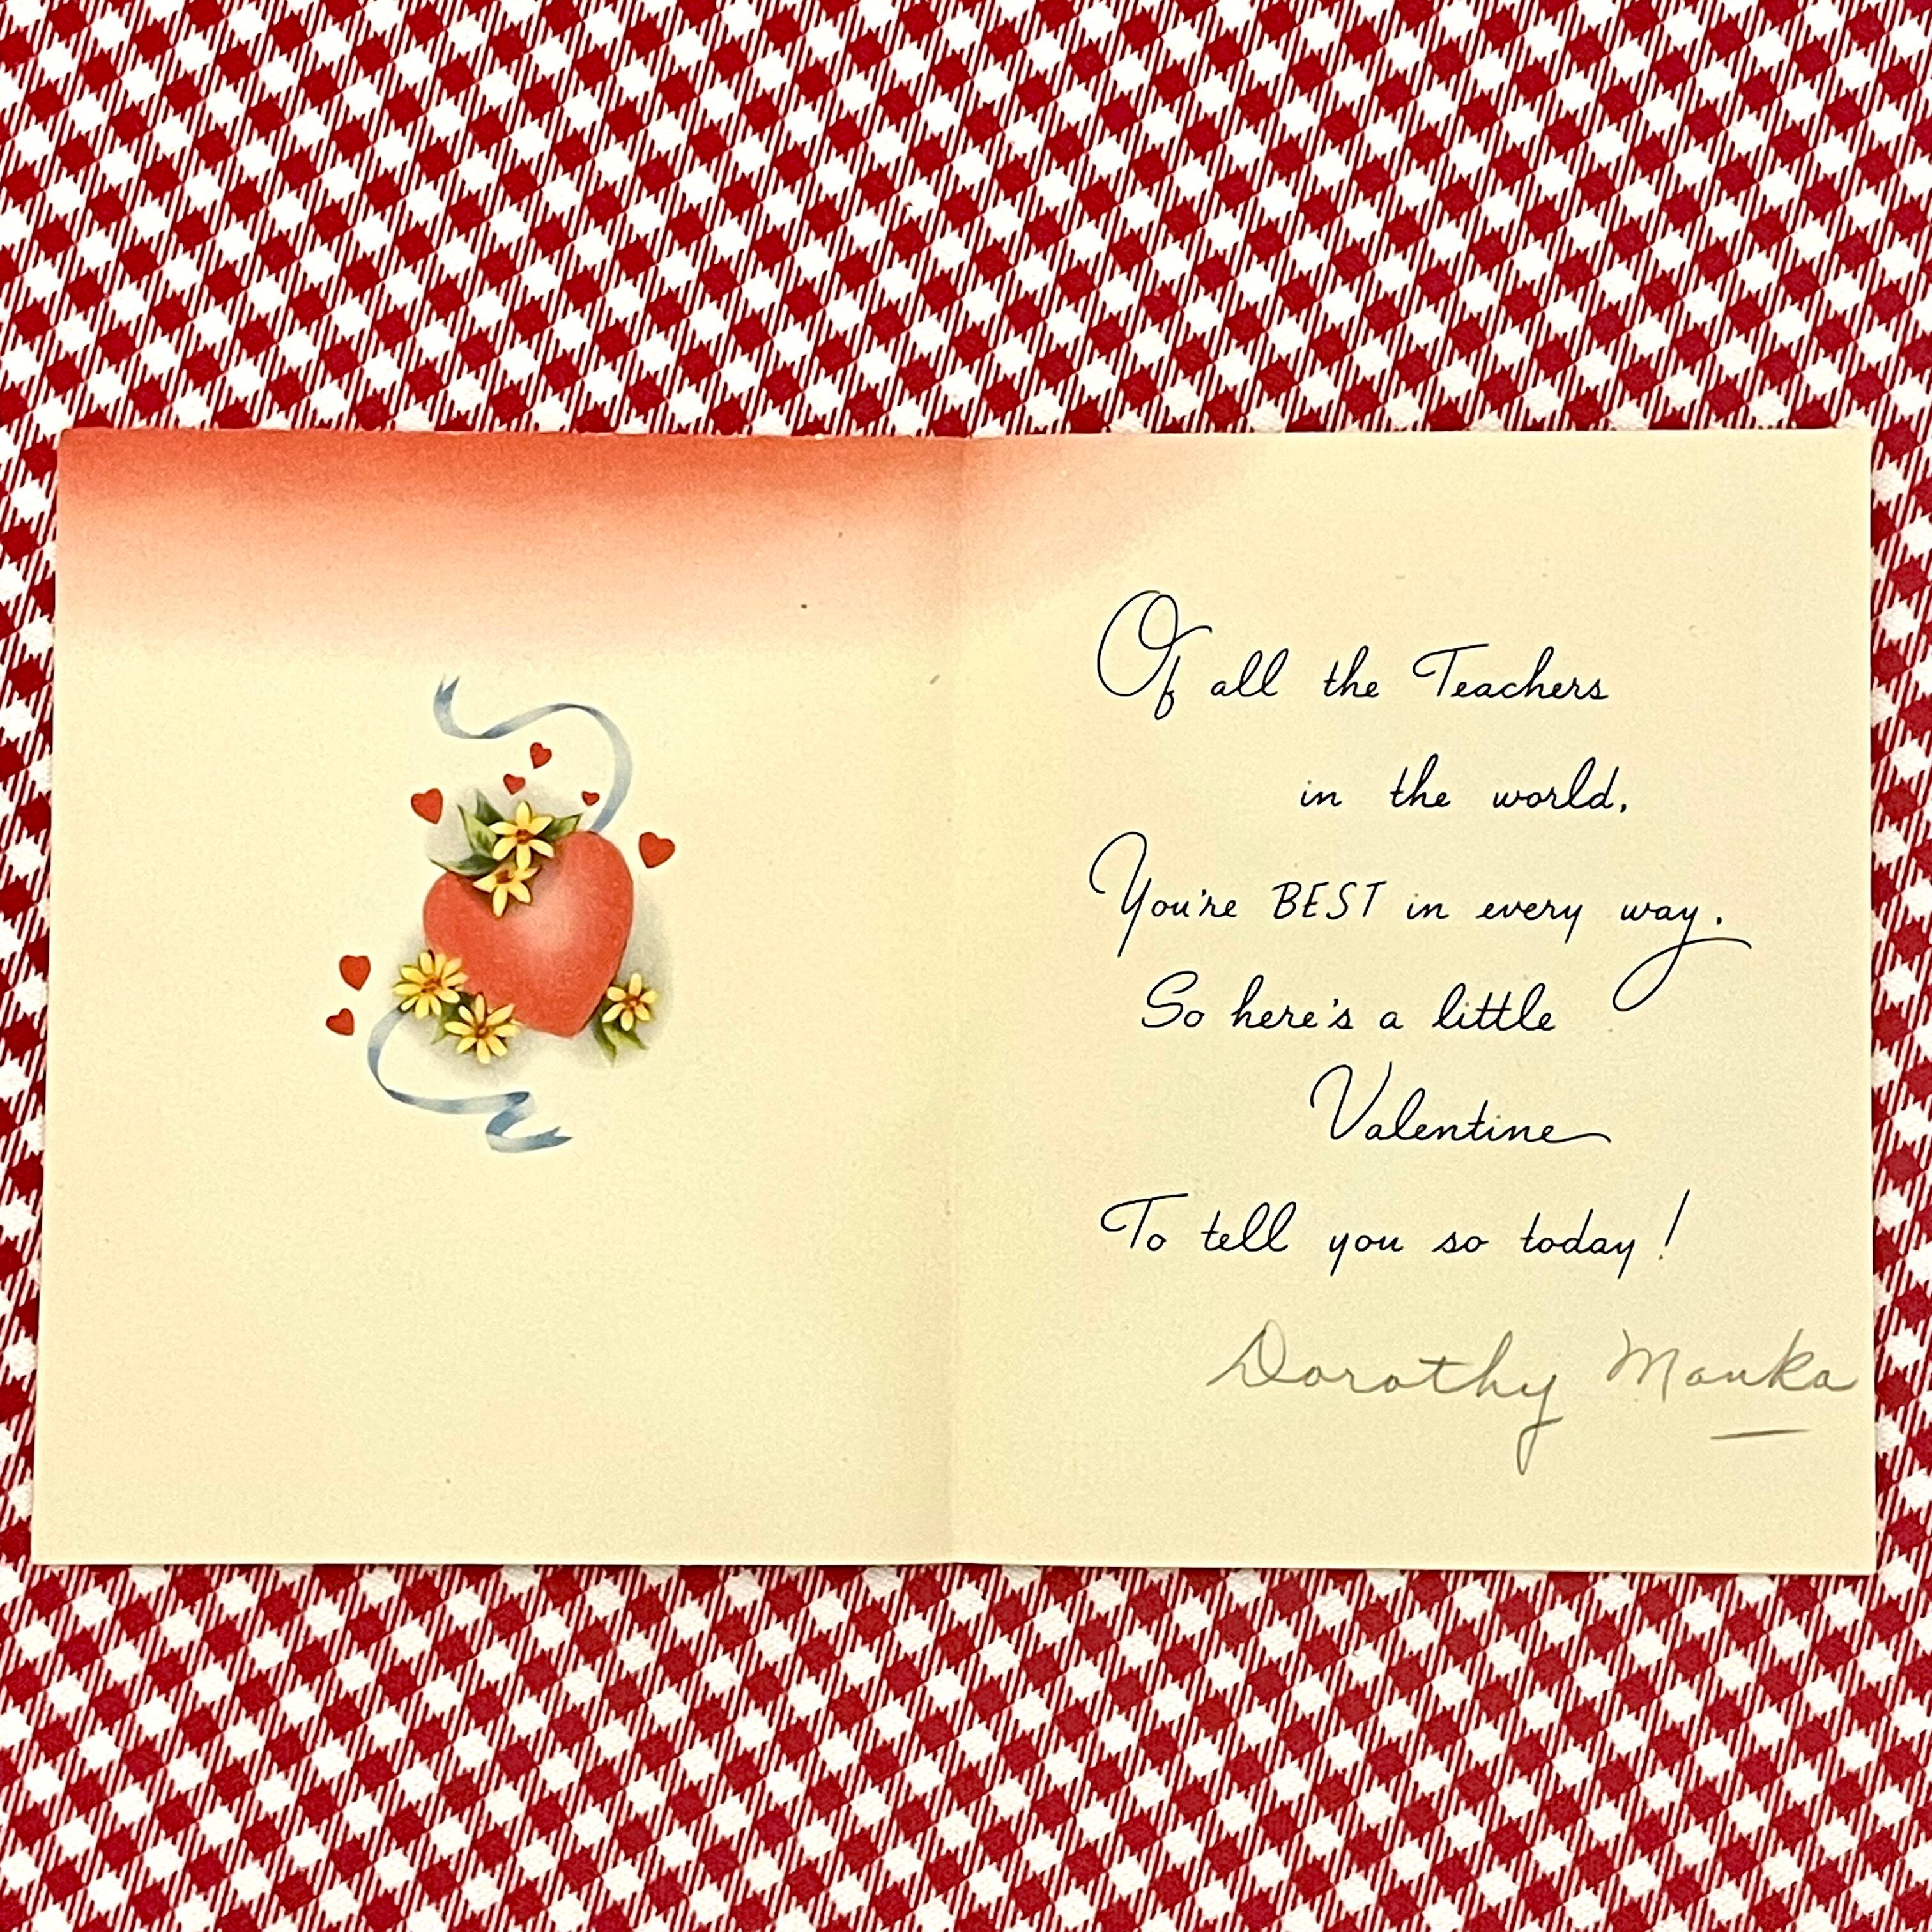 Of all the Teachers
in the world,
You're BEST in every way.
So here's a little
Valentine
To tell you so today!
Dorothy